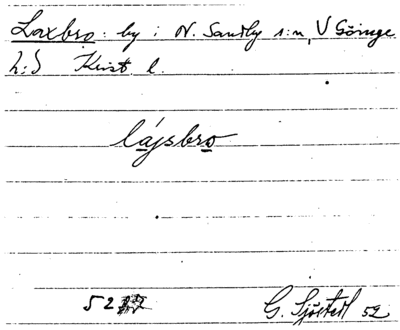 Laxbro: by i N. Sandby s:n, V Göinge
h:d Krist. l.
lájsbro
52
G. Sjöstedt 52